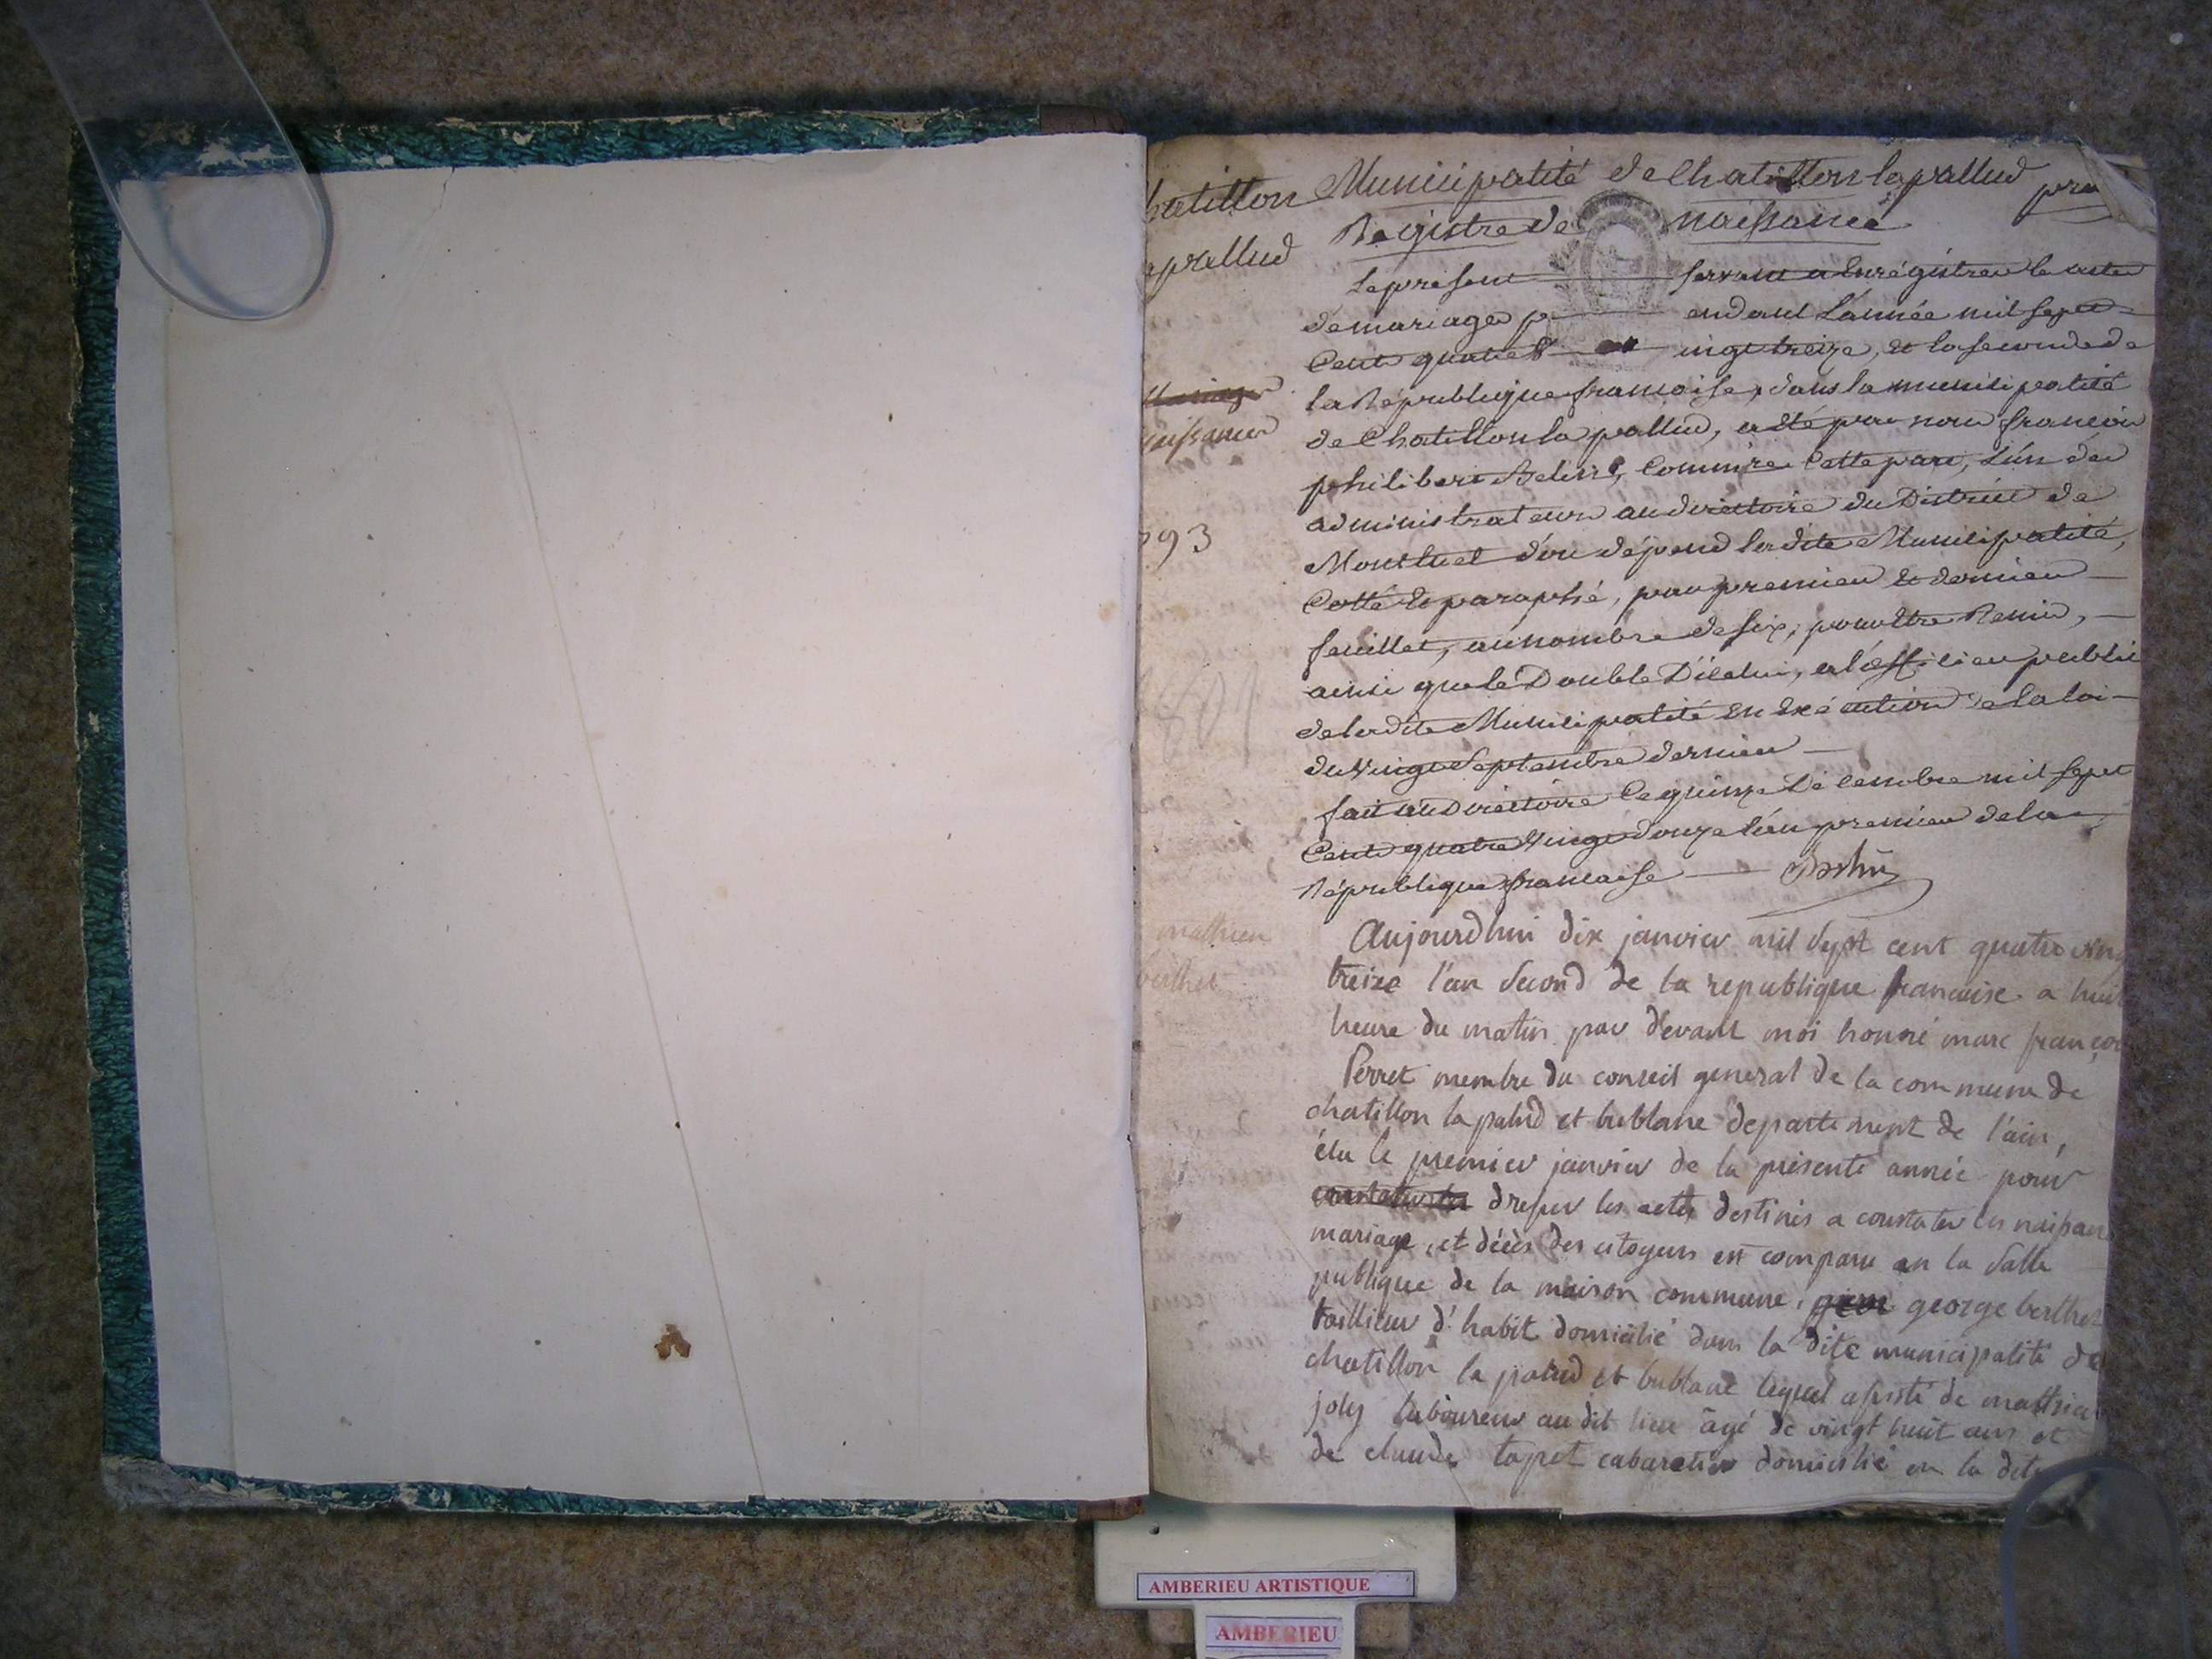 hatillon
apallud
Mariages
naissances
793
mathieu
berthet
Municipalité de Chatillon lapallud
Registre de naissance
Le présent servant a Enrégistrer le actes
de mariages pendant L'année mil sept
Cent quatre vingt treize, et la seconde de
la République francaise, dans la municipalité
de Chatillon la pallud, a été par nous francois
philibert Commire Cette part, L'un des
administrateurs au directoire du District de
Montluel d'ou dépend ladite Municipalité,
Cotté et paraphé, par premier et dernier
feuillet, au nombre de six, pour Etre Remis,
ainsi que le Double D'icelui, a l'officier public
de ladite Municipalité En Exécution de la loi
du vingt Septembre dernier
fait au Directoire Ce quinze Décembre mil sept
Cent quatre vingt douze L'an premier de la
République francaise
Aujourdhui dix janvier mil sept cent quatre ving
treize l'an second de la republique francaise a huit
heure du matin par devant moi honoré marc françois
Perret membre du conseil general de la commune de
chatillon la palud et bublane departement de l'ain,
élu le premier janvier de la présente année pour
constater les dresser les actes destinés a constater les naissan
mariage, et décès des citoyens est comparu en la salle
publique de la maison commune, george berthet
taillieur d'habit domicilié dans la dite municipalité de
chatillon la palud et bublane lequel assisté de mathieu
joly laboureur au dit lieu âgé de vingt huit ans et
de claude tapet cabaretier domicilié en la dite
AMBERIEU ARTISTIQUE
AMBERIEU